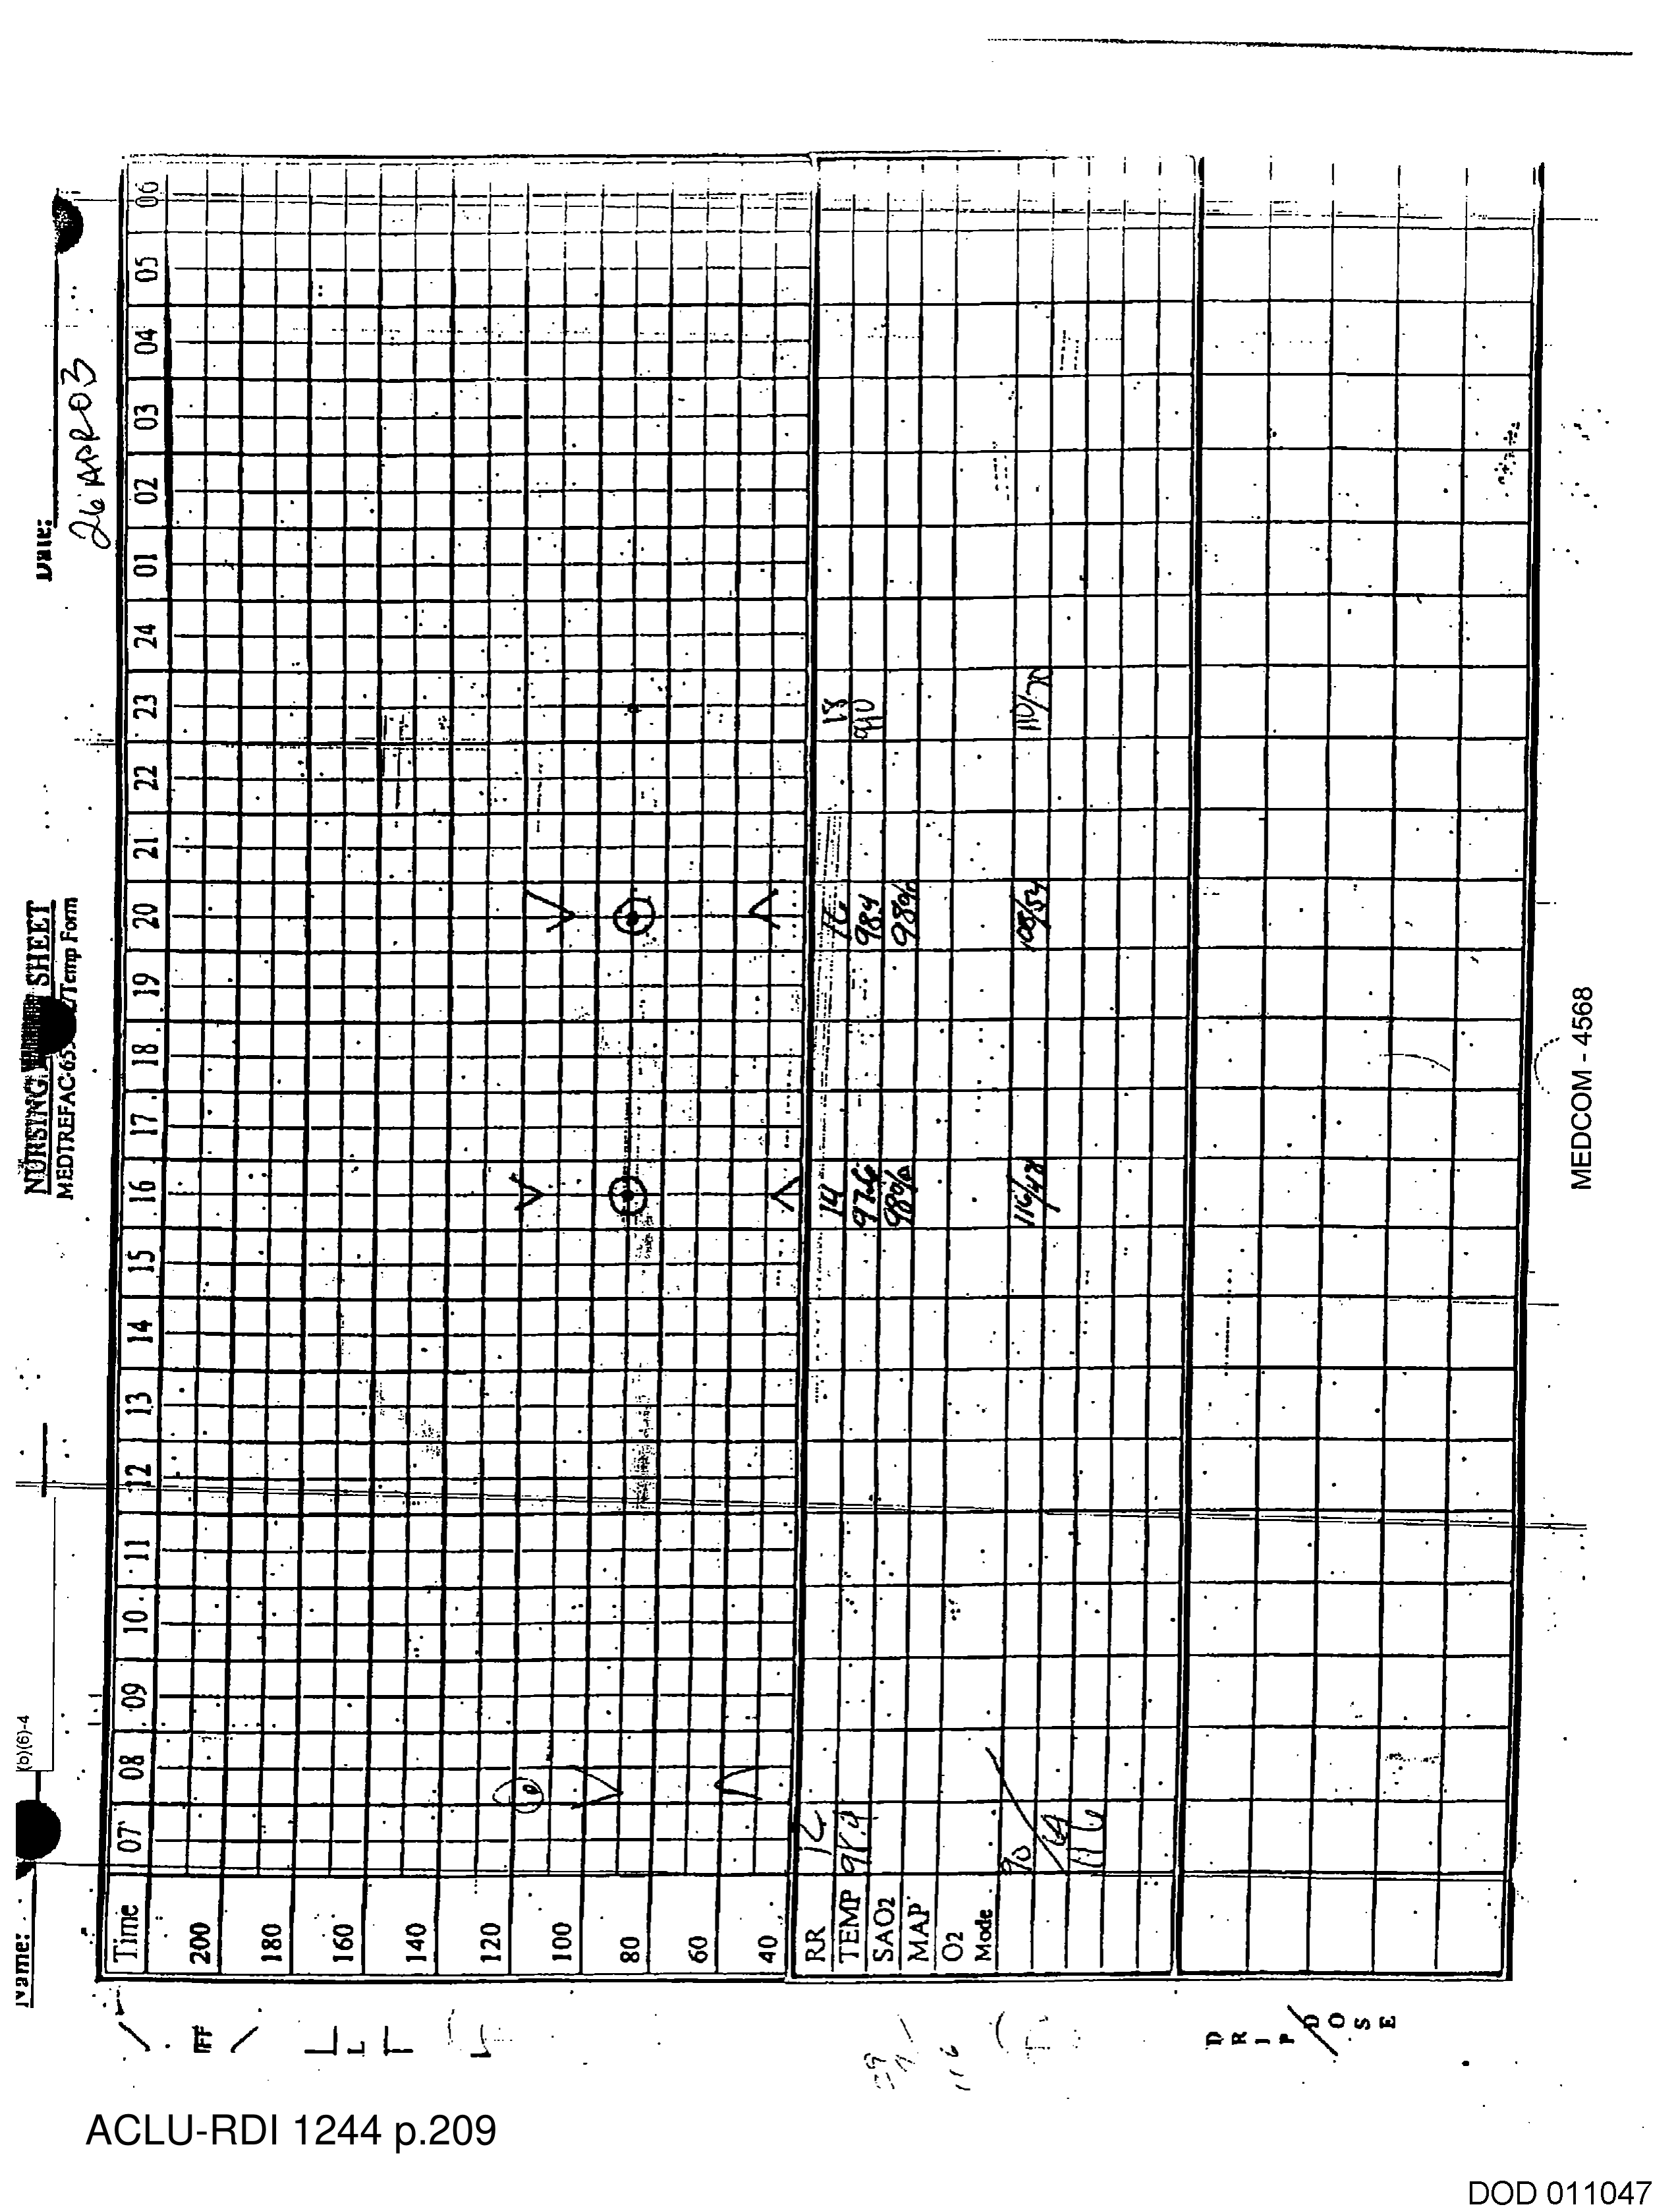 Name:
(b)(6)-4
NURSING SHEET
MEDTREFAC 655 /Temp Form
Date:
26 APR 03
Time 07 08 09 10 11 12 13 14 15 16 17 18 19 20 21 22 23 24 01 02 03 04 05 06
200
180
160
140
120
100
80
60
40
RR 14 16 18
TEMP 97.6 984 990
SAO2 98% 98%
MAP
O2
Mode
90/64 116/48 108/54 110/70
116
DRIP/DOSE
MEDCOM - 4568
ACLU-RDI 1244 p.209
DOD 011047